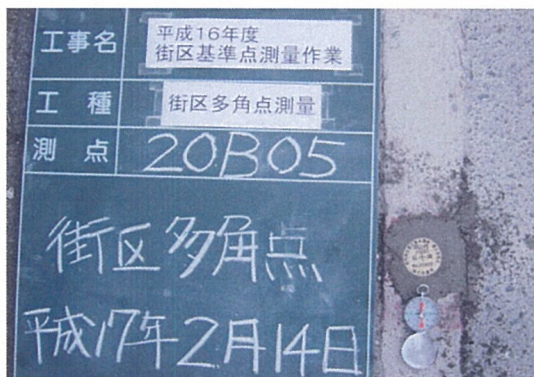 工事名
平成16年度
街区基準点測量作業
工種
街区多角点測量
測点
20B05
街区多角点
平成17年2月14日